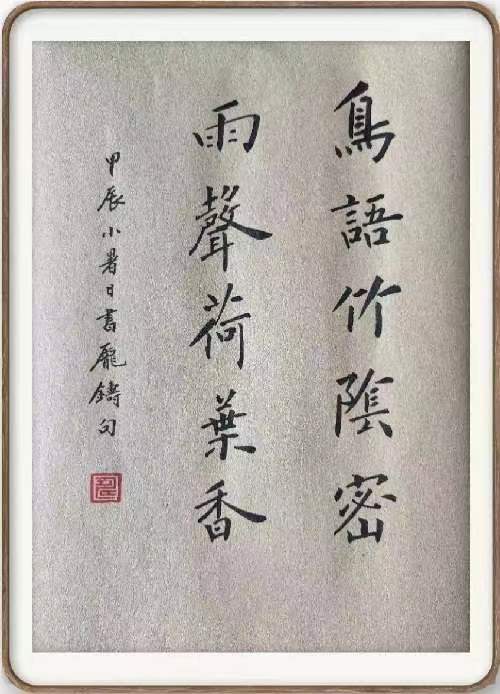 鳥語竹陰密
雨聲荷葉香
甲辰小暑日書龐鑄句